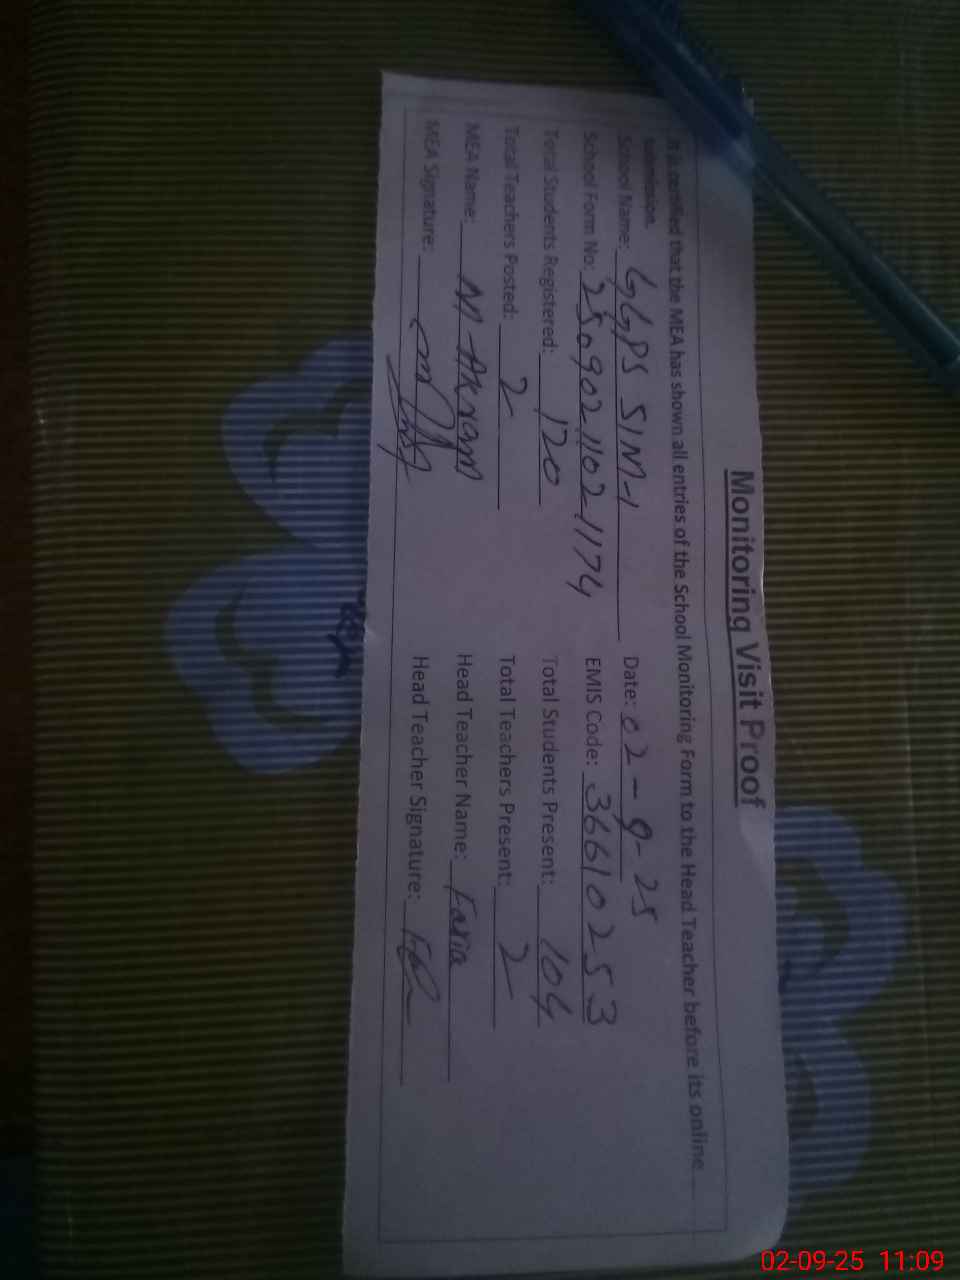 Monitoring Visit Proof
It is certified that the MEA has shown all entries of the School Monitoring Form to the Head Teacher before its online
submission.
School Name: GGPS SIM-1 Date: 02-9-25
School Form No: 2509021102-1174 EMIS Code: 36610253
Total Students Registered: 120 Total Students Present: 104
Total Teachers Posted: 2 Total Teachers Present: 2
MEA Name: M-Akram Head Teacher Name: Faria
MEA Signature: Head Teacher Signature:
02-09-25 11:09